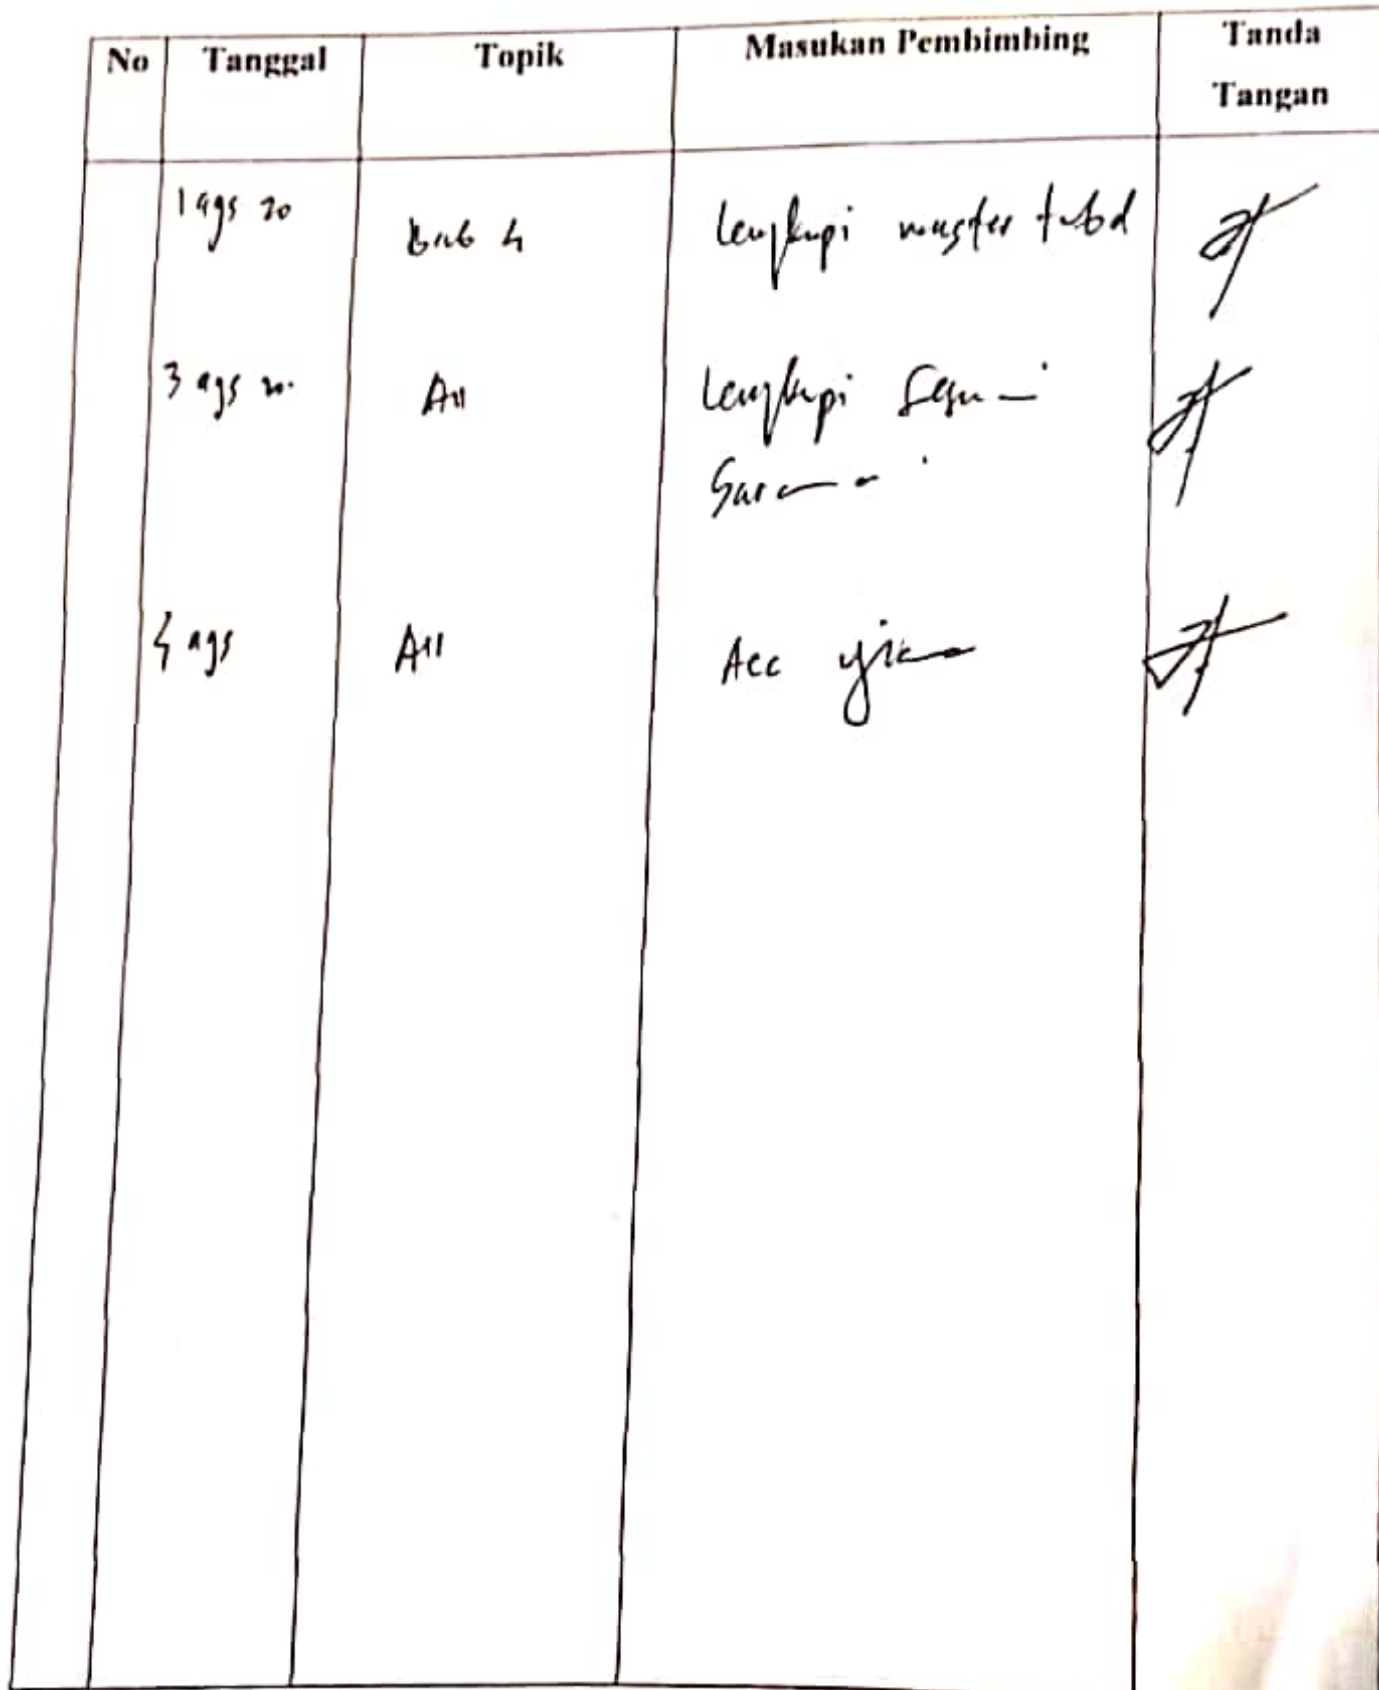 No Tanggal Topik Masukan Pembimbing Tanda
Tangan
1 ags 20 Bab 4 Lengkapi master tabel
3 ags 20 All Lengkapi Sesuai
Saran
4 ags All Acc ujian